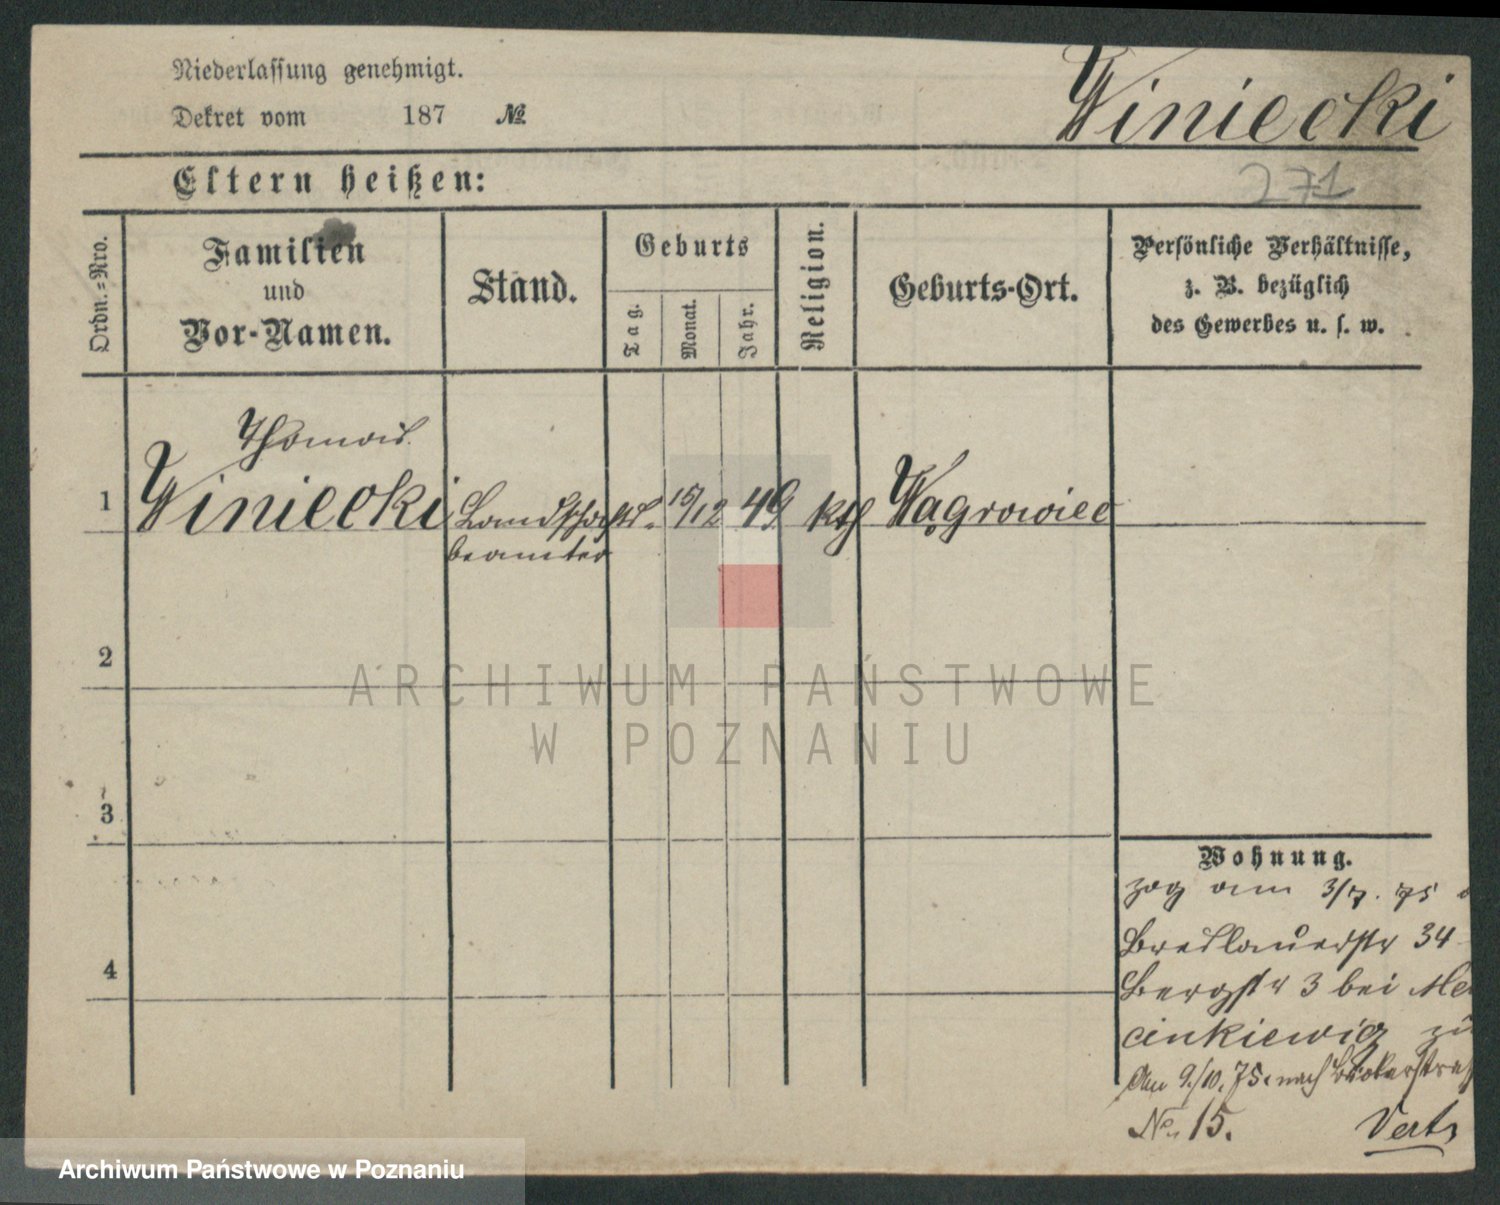 Niederlassung genehmigt.
Winiecki
Dekret vom 187 №
271
Eltern heißen:
Ordn.=Nro.
Familien
und
Vor-Namen.
Stand.
Geburts
Tag.
Monat.
Jahr.
Religion.
Geburts-Ort.
Persönliche Verhältnisse,
z. B. bezüglich
des Gewerbes u. s. w.
Thomas
1 Winiecki Landschafts- 15/12 49 kth Wągrowiec
beamter
2
ARCHIWUM PAŃSTWOWE
W POZNANIU
3
Wohnung.
zog am 3/7. 75
Breslauerstr 34
4
Bergstr 3 bei
cinkiewicz zu
Am 9./10. 75. nach
No. 15. Vert
Archiwum Państwowe w Poznaniu